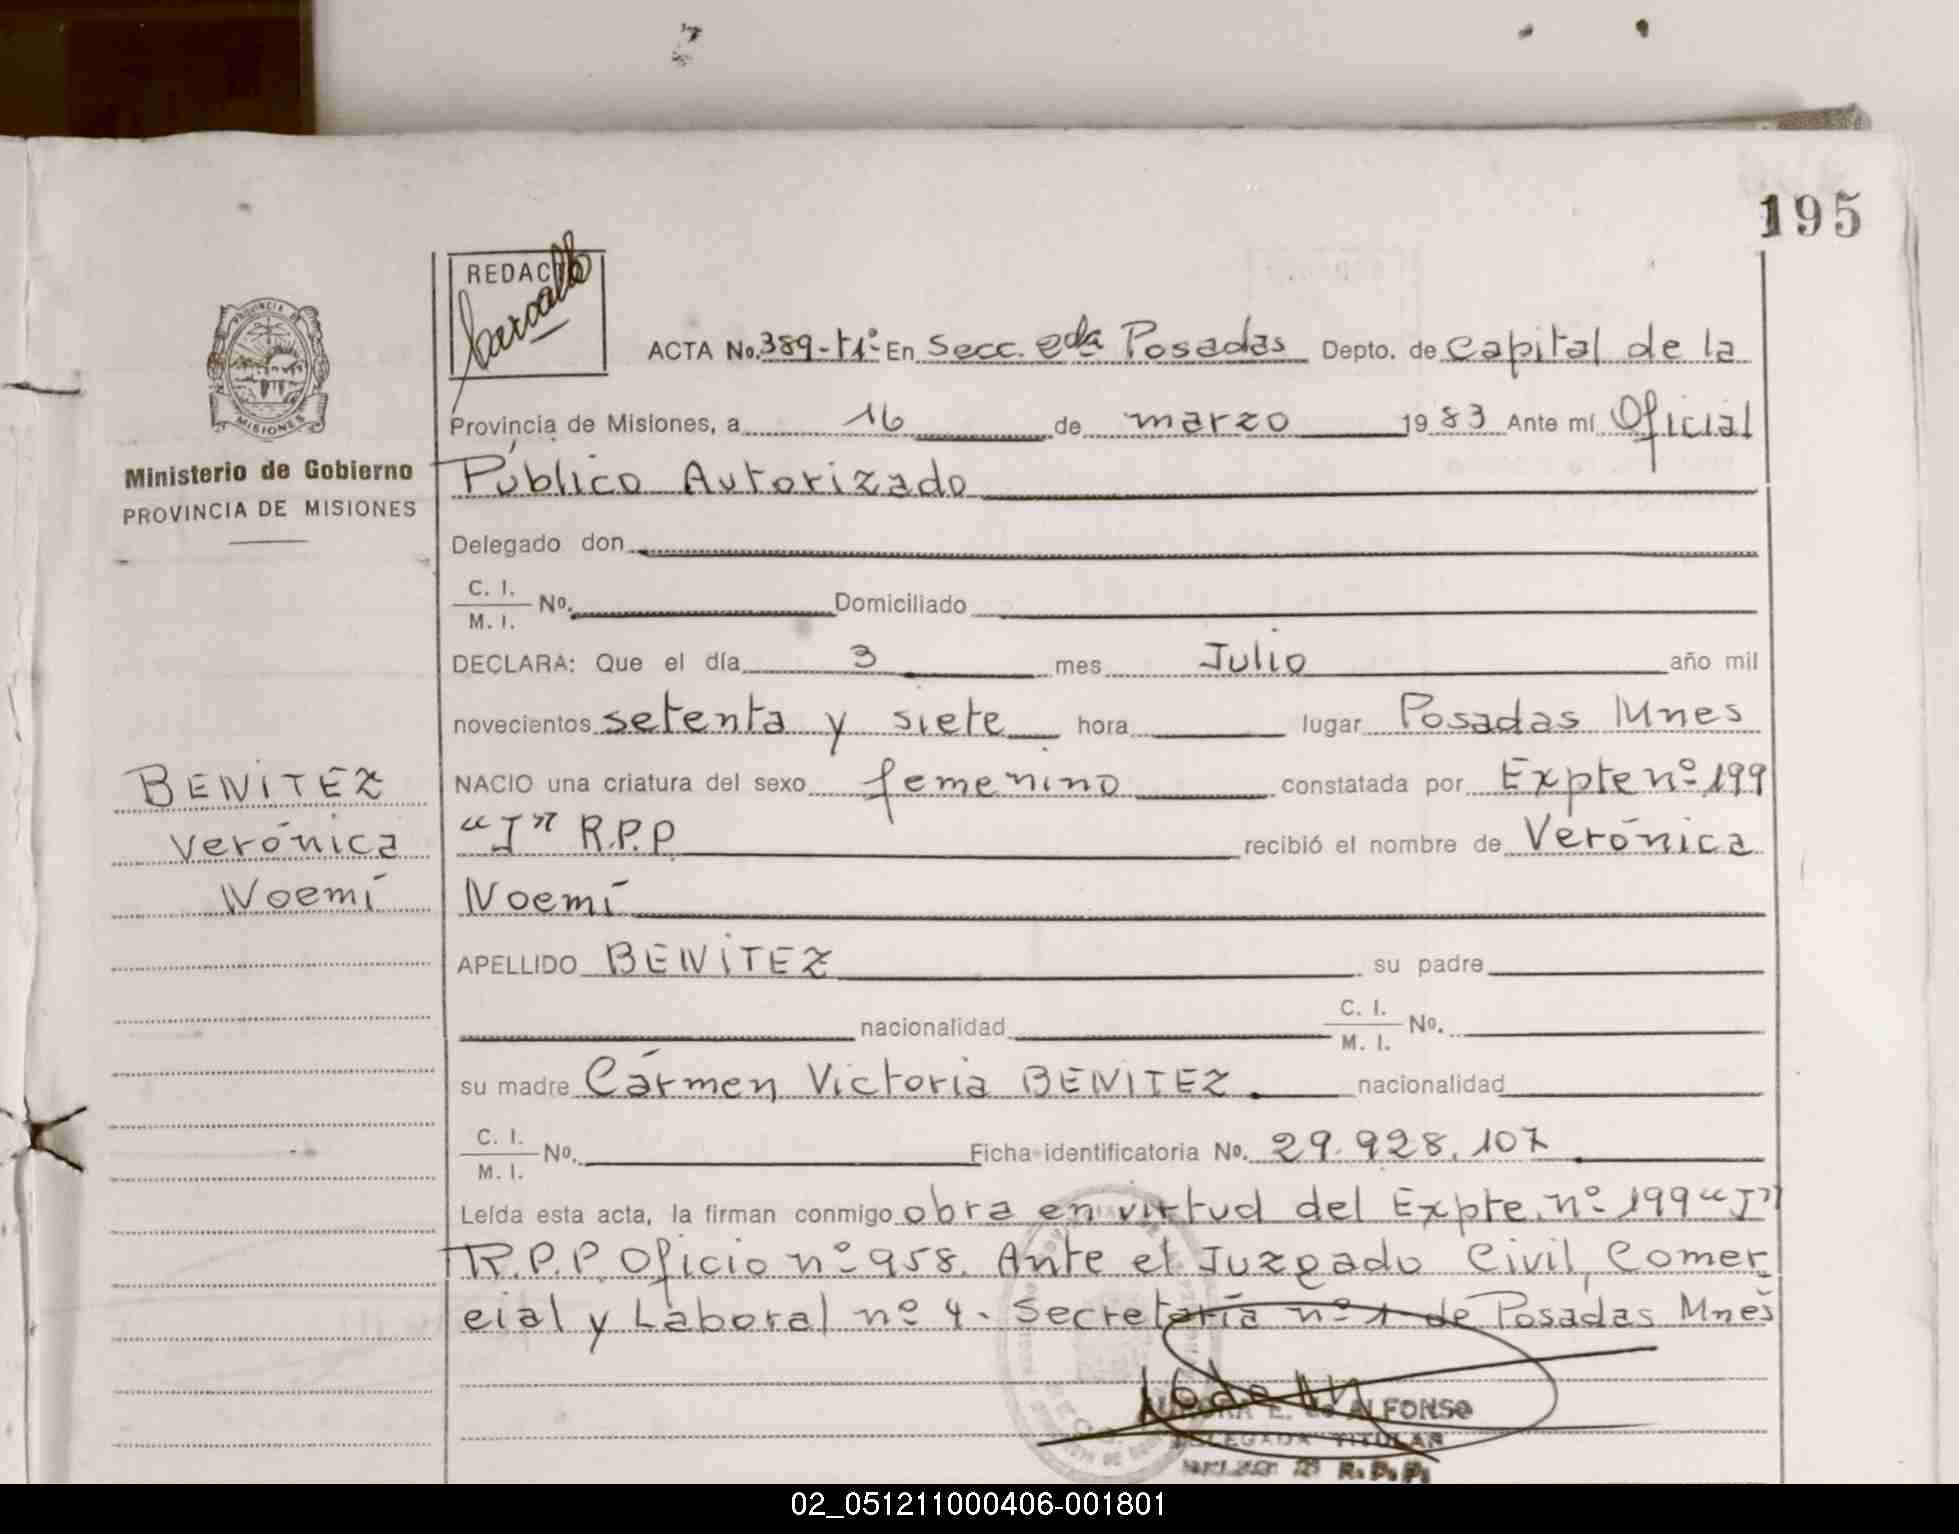 195
REDACTO
PROVINCIA DE
MISIONES
ACTA No. 389-T1º En Secc. 2da Posadas Depto. de Capital de la
Provincia de Misiones, a 16 de marzo 1983 Ante mí Oficial
Ministerio de Gobierno
PROVINCIA DE MISIONES
Público Autorizado
Delegado don
C. I.
M. I. No. Domiciliado
DECLARA: Que el día 3 mes Julio año mil
novecientos setenta y siete hora lugar Posadas Mnes
BENITEZ
Verónica
Noemí
NACIO una criatura del sexo femenino constatada por Expte nº 199
"J" R.P.P recibió el nombre de Verónica
Noemí
APELLIDO BENITEZ su padre
nacionalidad C. I.
M. I. No.
su madre Cármen Victoria BENITEZ. nacionalidad
C. I.
M. I. No. Ficha identificatoria No. 29.928.107
Leída esta acta, la firman conmigo obra en virtud del Expte. nº 199 "J"
R.P.P. Oficio nº 958. Ante el Juzgado Civil, Comer-
cial y Laboral nº 4. Secretaría nº 1 de Posadas Mnes
E. de ALFONSO
DELEGADA TITULAR
R. P. P.
02_051211000406-001801